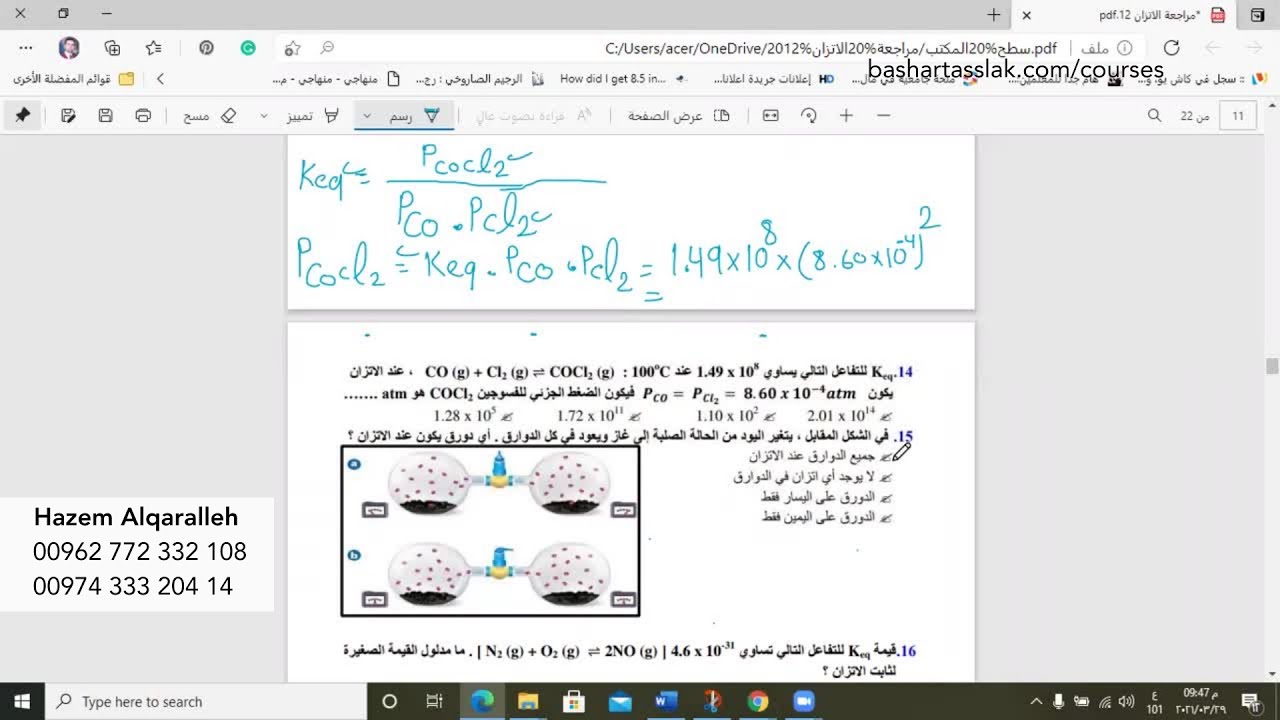 *مراجعة الاتزان 12.pdf
ملف
C:/Users/acer/OneDrive/سطح%20المكتب/مراجعة%20الاتزان%2012.pdf
bashartasslak.com/courses
قوائم المفضلة الأخرى
منهاجي - منهاجي - م...
الرجيم الصاروخي : رج...
How did I get 8.5 in...
إعلانات جريدة اعلانا...
منحة جامعية في مال...
هام جدا للمعلمين...
:: سجل في كاش يو، و...
مسح
تمييز
رسم
قراءة بصوت عالي
عرض الصفحة
من 22
11
Keq = PCOCl2
PCO . PCl2
PCOCl2 = Keq . PCO . PCl2 = 1.49 x 10^8 x (8.60 x 10^-4)^2
=
14. Keq للتفاعل التالي يساوي 1.49 x 10⁸ عند 100°C : CO (g) + Cl₂ (g) ⇌ COCl₂ (g) ، عند الاتزان
يكون P_CO = P_Cl₂ = 8.60 x 10⁻⁴ atm فيكون الضغط الجزئي للفسوجين COCl₂ هو atm .......
2.01 x 10¹⁴
1.10 x 10²
1.72 x 10¹¹
1.28 x 10⁵
15. في الشكل المقابل ، يتغير اليود من الحالة الصلبة إلى غاز ويعود في كل الدوارق . أي دورق يكون عند الاتزان ؟
جميع الدوارق عند الاتزان
لا يوجد أي اتزان في الدوارق
الدورق على اليسار فقط
الدورق على اليمين فقط
a
b
Hazem Alqaralleh
00962 772 332 108
00974 333 204 14
16. قيمة Keq للتفاعل التالي تساوي 4.6 x 10⁻³¹ | N₂ (g) + O₂ (g) ⇌ 2NO (g) | . ما مدلول القيمة الصغيرة
لثابت الاتزان ؟
Type here to search
ع
101
09:47 م
٢٠٢١/٠٣/٢٩